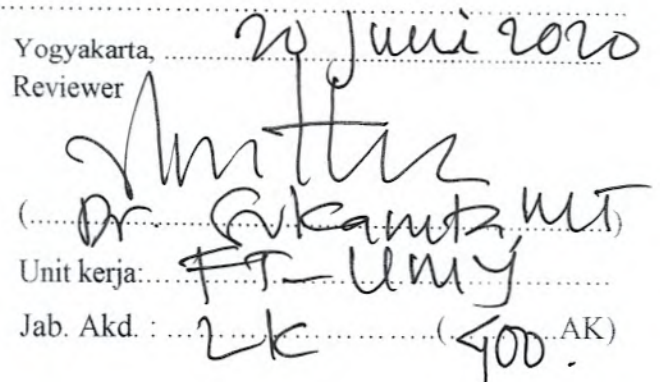 Yogyakarta, 20 Juni 2020
Reviewer
(Dr. Sukamta, MT)
Unit kerja: FT-UMY
Jab. Akd. : LK (400 AK)